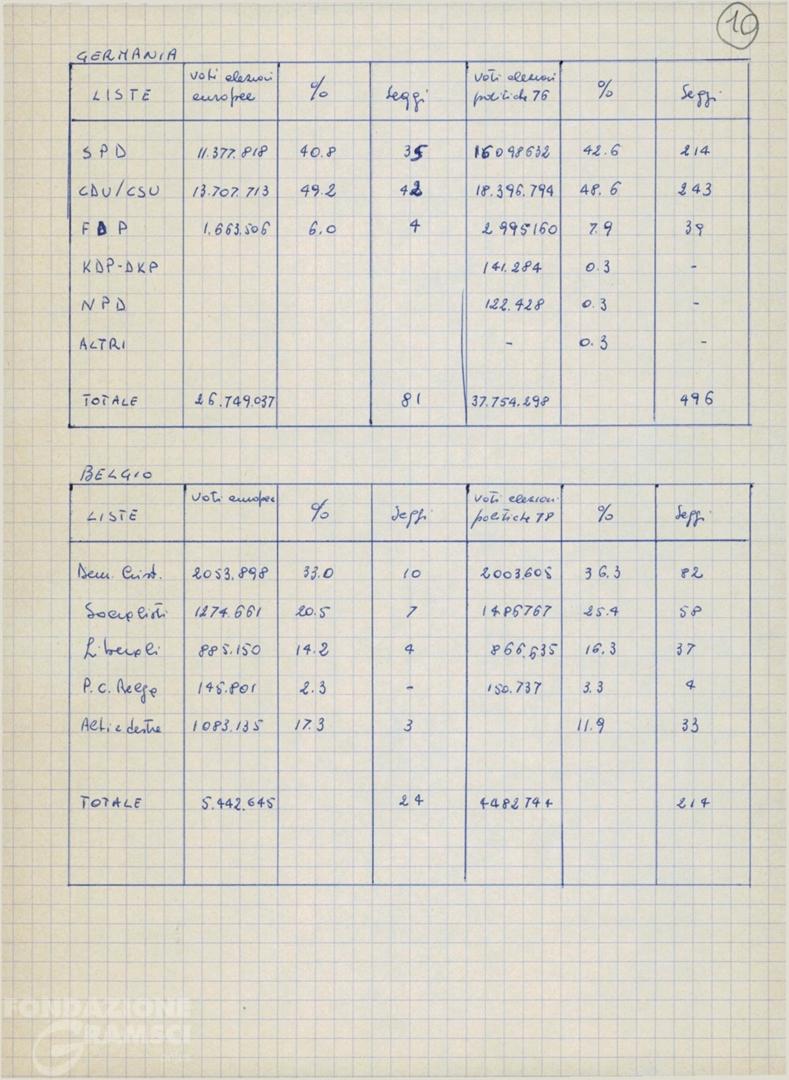 10
GERMANIA
LISTE voti elezioni europee % Seggi voti elezioni politiche 76 % Seggi
SPD 11.377.818 40.8 35 16098632 42.6 214
CDU/CSU 13.707.713 49.2 42 18.396.794 48.6 243
FDP 1.663.506 6.0 4 2995160 7.9 39
KDP-DKP 141.284 0.3 -
NPD 122.428 0.3 -
ALTRI - 0.3 -
TOTALE 26.749.037 81 37.754.298 496
BELGIO
LISTE voti europee % Seggi voti elezioni politiche 78 % Seggi
Dem. Crist. 2053.898 33.0 10 2003605 36.3 82
Socialisti 1274.661 20.5 7 1486767 25.4 58
Liberali 885.150 14.2 4 866.535 16.3 37
P.C. Belga 145.801 2.3 - 150.737 3.3 4
Altri e destre 1083.135 17.3 3 11.9 33
TOTALE 5.442.645 24 4482744 214
FONDAZIONE
GRAMSCI